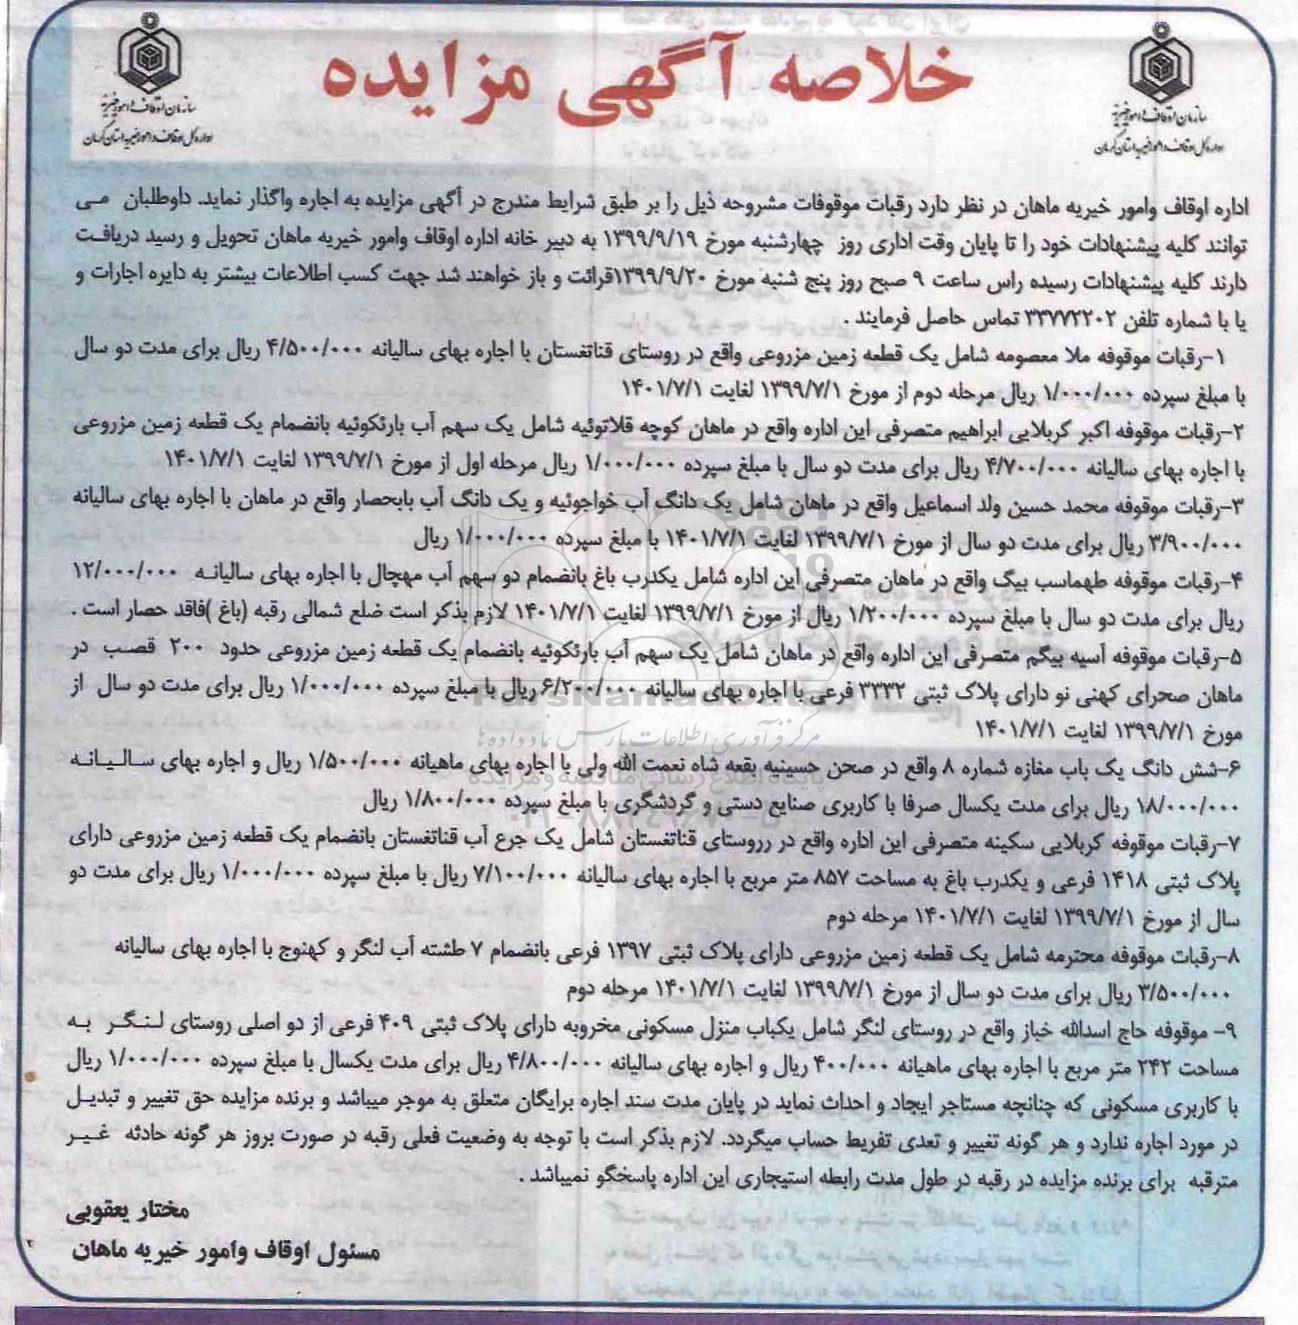 خلاصه آگهی مزایده
سازمان اوقاف و امور خیریه
اداره کل اوقاف و امور خیریه استان کرمان
سازمان اوقاف و امور خیریه
اداره کل اوقاف و امور خیریه استان کرمان
اداره اوقاف وامور خیریه ماهان در نظر دارد رقبات موقوفات مشروحه ذیل را بر طبق شرایط مندرج در آگهی مزایده به اجاره واگذار نماید. داوطلبان می
توانند کلیه پیشنهادات خود را تا پایان وقت اداری روز چهارشنبه مورخ ۱۳۹۹/۹/۱۹ به دبیر خانه اداره اوقاف وامور خیریه ماهان تحویل و رسید دریافت
دارند کلیه پیشنهادات رسیده راس ساعت ۹ صبح روز پنج شنبه مورخ ۱۳۹۹/۹/۲۰قرائت و باز خواهند شد جهت کسب اطلاعات بیشتر به دایره اجارات و
یا با شماره تلفن ۳۳۷۷۲۲۰۲ تماس حاصل فرمایند .
۱-رقبات موقوفه ملا معصومه شامل یک قطعه زمین مزروعی واقع در روستای قناتغستان با اجاره بهای سالیانه ۴/۵۰۰/۰۰۰ ریال برای مدت دو سال
با مبلغ سپرده ۱/۰۰۰/۰۰۰ ریال مرحله دوم از مورخ ۱۳۹۹/۷/۱ لغایت ۱۴۰۱/۷/۱
۲-رقبات موقوفه اکبر کربلایی ابراهیم متصرفی این اداره واقع در ماهان کوچه قلاتوئیه شامل یک سهم آب بارئکوئیه بانضمام یک قطعه زمین مزروعی
با اجاره بهای سالیانه ۴/۷۰۰/۰۰۰ ریال برای مدت دو سال با مبلغ سپرده ۱/۰۰۰/۰۰۰ ریال مرحله اول از مورخ ۱۳۹۹/۷/۱ لغایت ۱۴۰۱/۷/۱
۳-رقبات موقوفه محمد حسین ولد اسماعیل واقع در ماهان شامل یک دانگ آب خواجوئیه و یک دانگ آب بابحصار واقع در ماهان با اجاره بهای سالیانه
۳/۹۰۰/۰۰۰ ریال برای مدت دو سال از مورخ ۱۳۹۹/۷/۱ لغایت ۱۴۰۱/۷/۱ با مبلغ سپرده ۱/۰۰۰/۰۰۰ ریال
۴-رقبات موقوفه طهماسب بیگ واقع در ماهان متصرفی این اداره شامل یکدرب باغ بانضمام دو سهم آب مهچال با اجاره بهای سالیانه ۱۲/۰۰۰/۰۰۰
ریال برای مدت دو سال با مبلغ سپرده ۱/۲۰۰/۰۰۰ ریال از مورخ ۱۳۹۹/۷/۱ لغایت ۱۴۰۱/۷/۱ لازم بذکر است ضلع شمالی رقبه (باغ )فاقد حصار است .
۵-رقبات موقوفه آسیه بیگم متصرفی این اداره واقع در ماهان شامل یک سهم آب بارئکوئیه بانضمام یک قطعه زمین مزروعی حدود ۲۰۰ قصب در
ماهان صحرای کهنی نو دارای پلاک ثبتی ۳۳۳۲ فرعی با اجاره بهای سالیانه ۶/۲۰۰/۰۰۰ ریال با مبلغ سپرده ۱/۰۰۰/۰۰۰ ریال برای مدت دو سال از
مورخ ۱۳۹۹/۷/۱ لغایت ۱۴۰۱/۷/۱
ParsNamadData
مرکز فرآوری اطلاعات پارس نماد داده ها
۶-شش دانگ یک باب مغازه شماره ۸ واقع در صحن حسینیه بقعه شاه نعمت الله ولی با اجاره بهای ماهیانه ۱/۵۰۰/۰۰۰ ریال و اجاره بهای سالیانه
۱۸/۰۰۰/۰۰۰ ریال برای مدت یکسال صرفا با کاربری صنایع دستی و گردشگری با مبلغ سپرده ۱/۸۰۰/۰۰۰ ریال
۷-رقبات موقوفه کربلایی سکینه متصرفی این اداره واقع در رروستای قناتغستان شامل یک جرع آب قناتغستان بانضمام یک قطعه زمین مزروعی دارای
پلاک ثبتی ۱۴۱۸ فرعی و یکدرب باغ به مساحت ۸۵۷ متر مربع با اجاره بهای سالیانه ۷/۱۰۰/۰۰۰ ریال با مبلغ سپرده ۱/۰۰۰/۰۰۰ ریال برای مدت دو
سال از مورخ ۱۳۹۹/۷/۱ لغایت ۱۴۰۱/۷/۱ مرحله دوم
۸-رقبات موقوفه محترمه شامل یک قطعه زمین مزروعی دارای پلاک ثبتی ۱۳۹۷ فرعی بانضمام ۷ طشته آب لنگر و کهنوج با اجاره بهای سالیانه
۳/۵۰۰/۰۰۰ ریال برای مدت دو سال از مورخ ۱۳۹۹/۷/۱ لغایت ۱۴۰۱/۷/۱ مرحله دوم
۹- موقوفه حاج اسدالله خباز واقع در روستای لنگر شامل یکباب منزل مسکونی مخروبه دارای پلاک ثبتی ۴۰۹ فرعی از دو اصلی روستای لنگر به
مساحت ۲۴۲ متر مربع با اجاره بهای ماهیانه ۴۰۰/۰۰۰ ریال و اجاره بهای سالیانه ۴/۸۰۰/۰۰۰ ریال برای مدت یکسال با مبلغ سپرده ۱/۰۰۰/۰۰۰ ریال
با کاربری مسکونی که چنانچه مستاجر ایجاد و احداث نماید در پایان مدت سند اجاره برایگان متعلق به موجر میباشد و برنده مزایده حق تغییر و تبدیل
در مورد اجاره ندارد و هر گونه تغییر و تعدی تفریط حساب میگردد. لازم بذکر است با توجه به وضعیت فعلی رقبه در صورت بروز هر گونه حادثه غیر
مترقبه برای برنده مزایده در رقبه در طول مدت رابطه استیجاری این اداره پاسخگو نمیباشد .
مختار یعقوبی
مسئول اوقاف وامور خیریه ماهان
۲